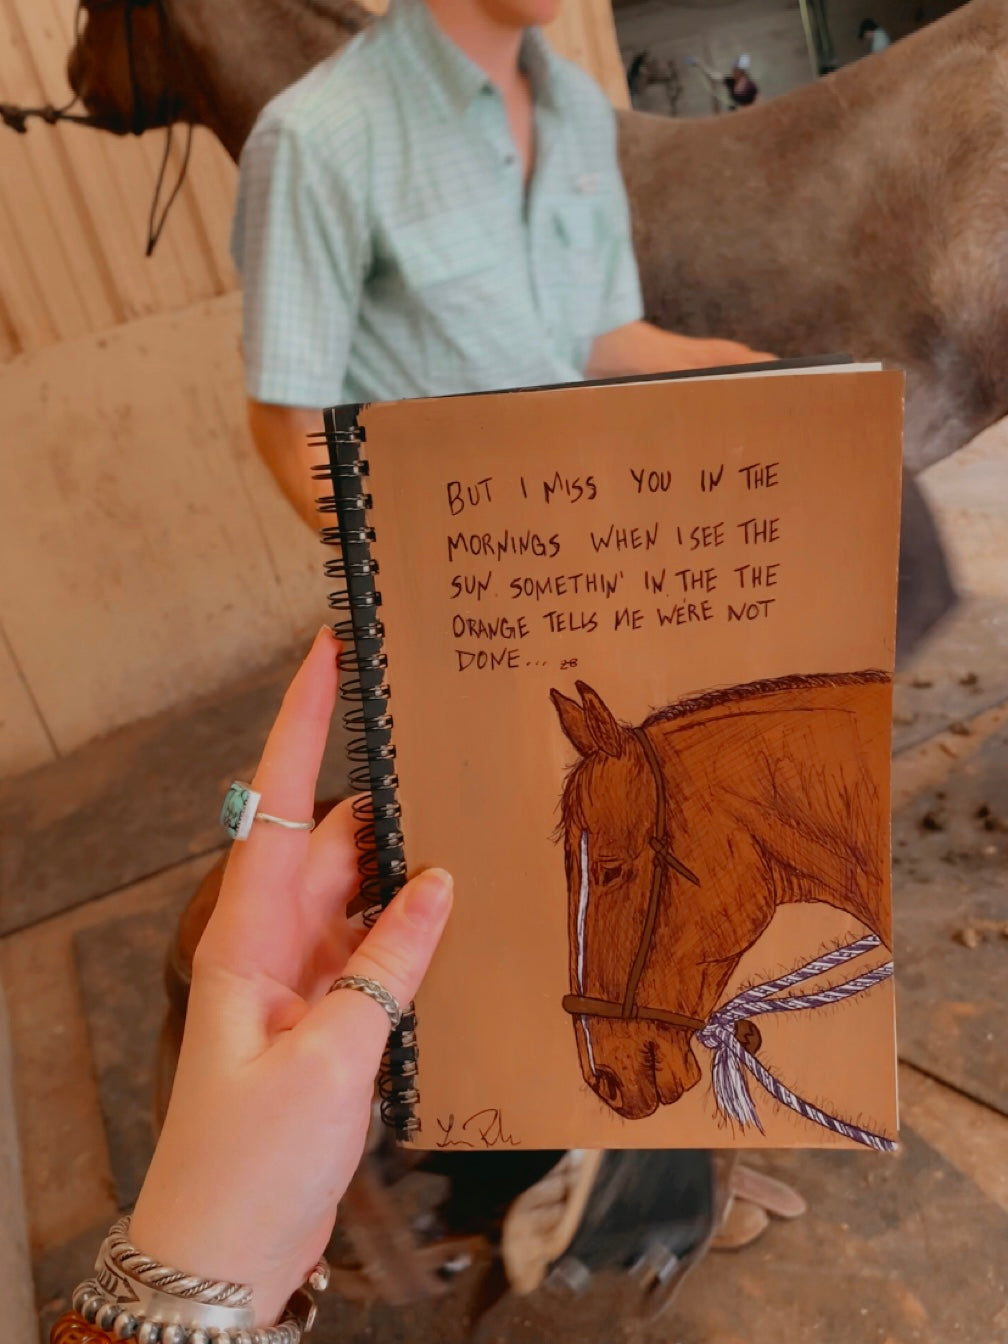 BUT I MISS YOU IN THE
MORNINGS WHEN I SEE THE
SUN. SOMETHIN' IN THE THE
ORANGE TELLS ME WE'RE NOT
DONE... ZB